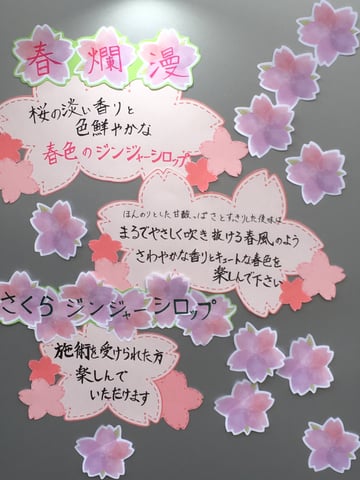 春爛漫
桜の淡い香りと
色鮮やかな
春色のジンジャーシロップ
ほんのりとした甘酸っぱさとすっきりした後味は
まるでやさしく吹き抜ける春風のよう
さわやかな香りとキュートな春色を
楽しんで下さい
さくらジンジャーシロップ
施術を受けられた方
楽しんで
いただけます